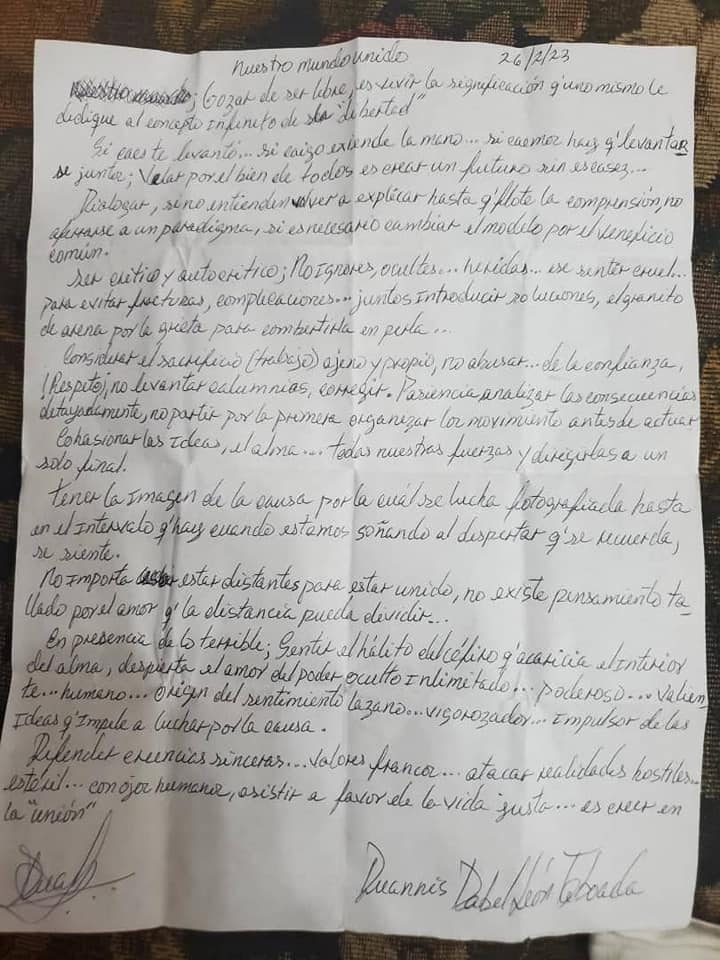 Nuestro mundo unido 26/2/23
Nuestro mundo; Gozar de ser libre, es vivir la significación q' uno mismo le
dedique al concepto infinito de la "libertad"
Si caes te levantó... si caigo extiende la mano... si caemos hay q' levantar
se juntos; Velar por el bien de todos es crear un futuro sin escasez...
Dialogar, si no entienden volver a explicar hasta q' flote la comprensión, no
aferrarse a un paradigma, si es necesario cambiar el modelo por el veneficio
común.
Ser critico y autocritico; No Ignores, ocultes... heridas... se sentir cruel...
para evitar fracturas, complicaciones... juntos Introducir soluciones, el granito
de arena por la grieta para combertirla en perla...
Considerar el sacrificio (trabajo) ajeno y propio, no abusar... de la confianza,
(Respeto), no levantar calumnias, corregir. Pasiencia analizar las consecuencias
detayadamente, no partir por la primera organizar los movimiento antes de actuar
Cohasionar las Ideas, el alma... todas nuestras fuerzas y dirigirlas a un
solo final.
Tener la Imagen de la causa por la cuál se lucha fotografiada hasta
en el Intervalo q' hay cuando estamos soñando al despertar q' se recuerda,
se siente.
No Importa estar distantes para estar unido, no existe pensamiento ta-
llado por el amor q' la distancia pueda dividir...
En presencia de lo terrible; Sentir el hálito del céfiro q' acaricia el Interior
del alma, despierta el amor del poder oculto Inlimitado... poderoso... valien-
te... humano... origen del sentimiento lozano... vigorozador... Impulsor de las
Ideas q' Impele a luchar por la causa.
Defender creencias sinceras... valores francos... atacar realidades hostiles...
estéril... con ojos humanos, asistir a favor de la vida justa... es creer en
la "unión"
Duannis Dabel León Taboada